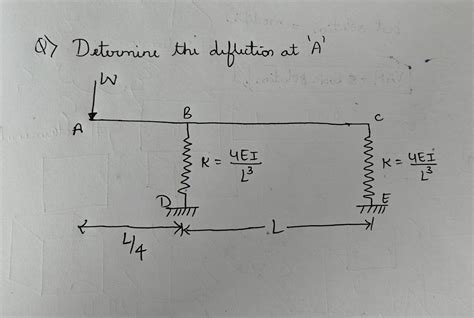 Q> Determine the deflection at 'A'
W
A
B
C
K = 4EI/L³
K = 4EI/L³
D
E
L/4
L